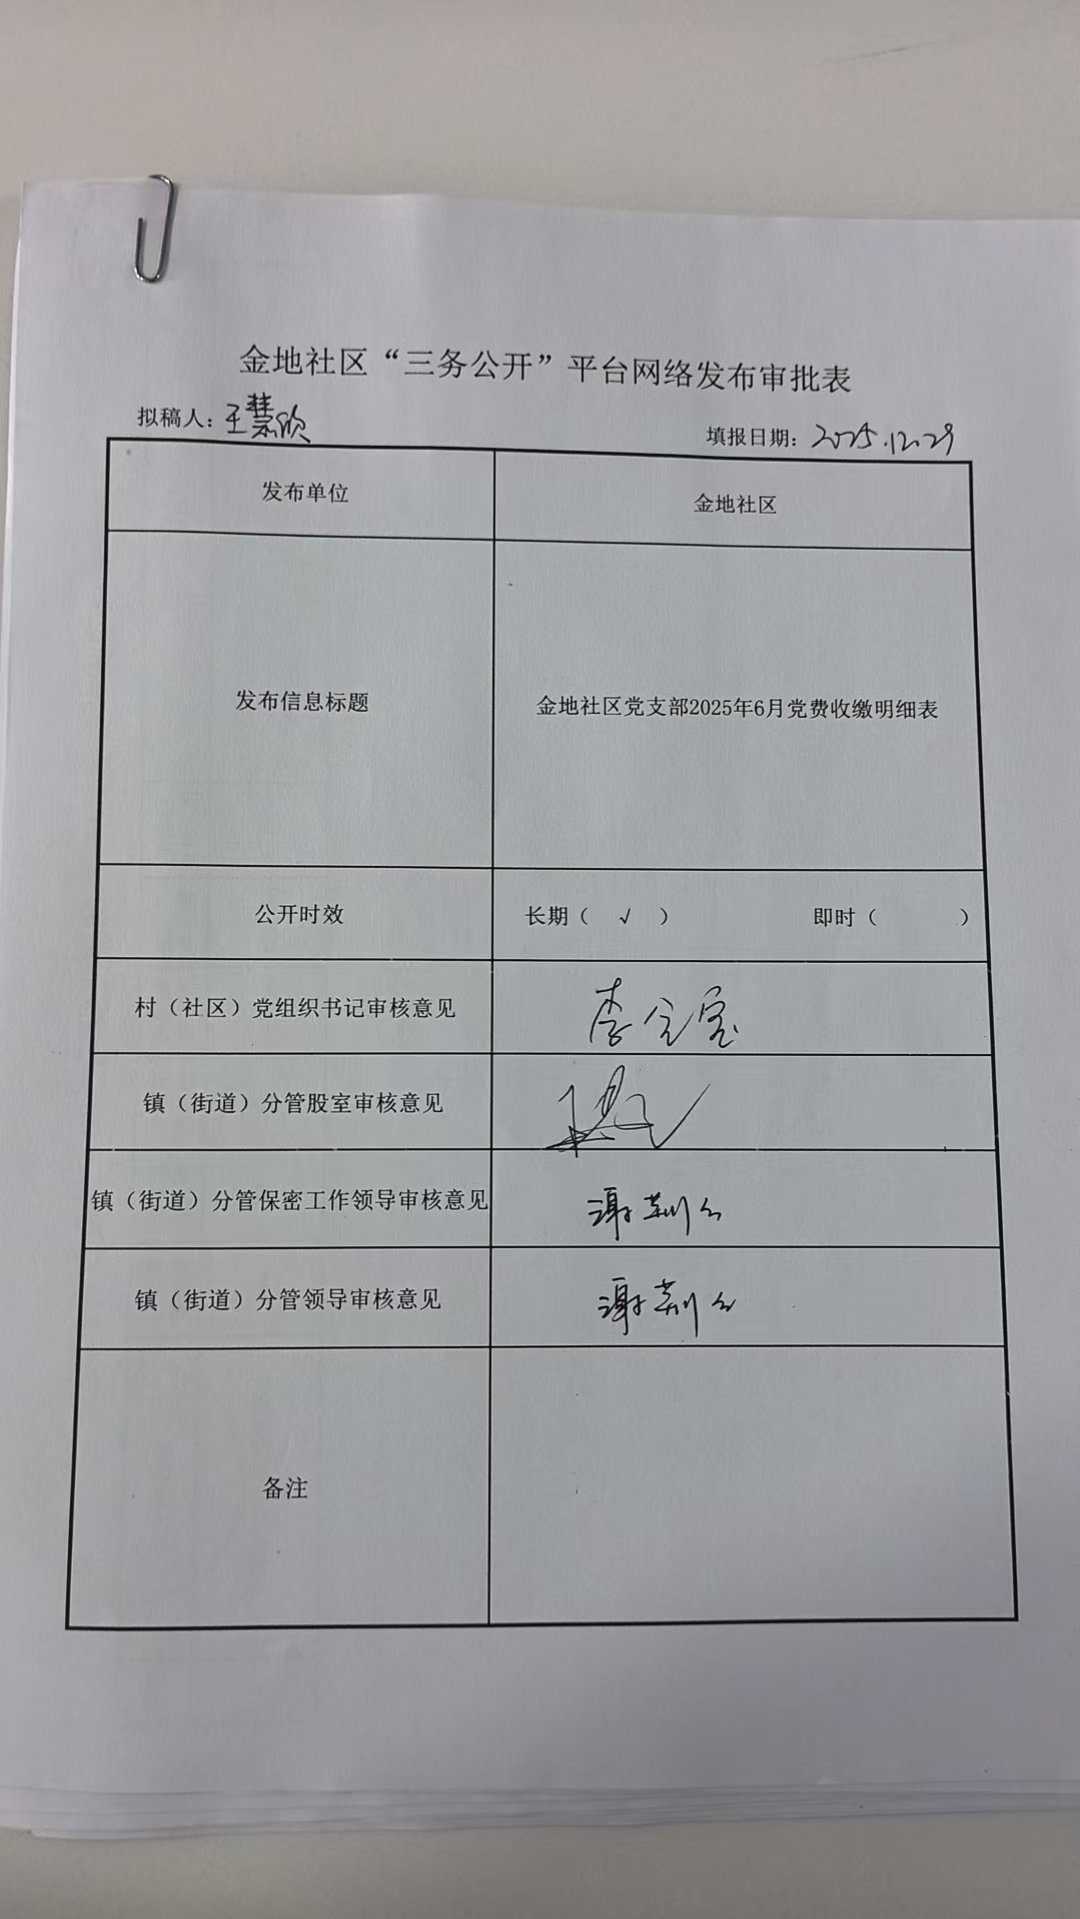 金地社区“三务公开”平台网络发布审批表
拟稿人：王慧欣
填报日期：2025.12.29
发布单位 金地社区
发布信息标题 金地社区党支部2025年6月党费收缴明细表
公开时效 长期（ √ ） 即时（ ）
村（社区）党组织书记审核意见
镇（街道）分管股室审核意见
镇（街道）分管保密工作领导审核意见
镇（街道）分管领导审核意见
备注